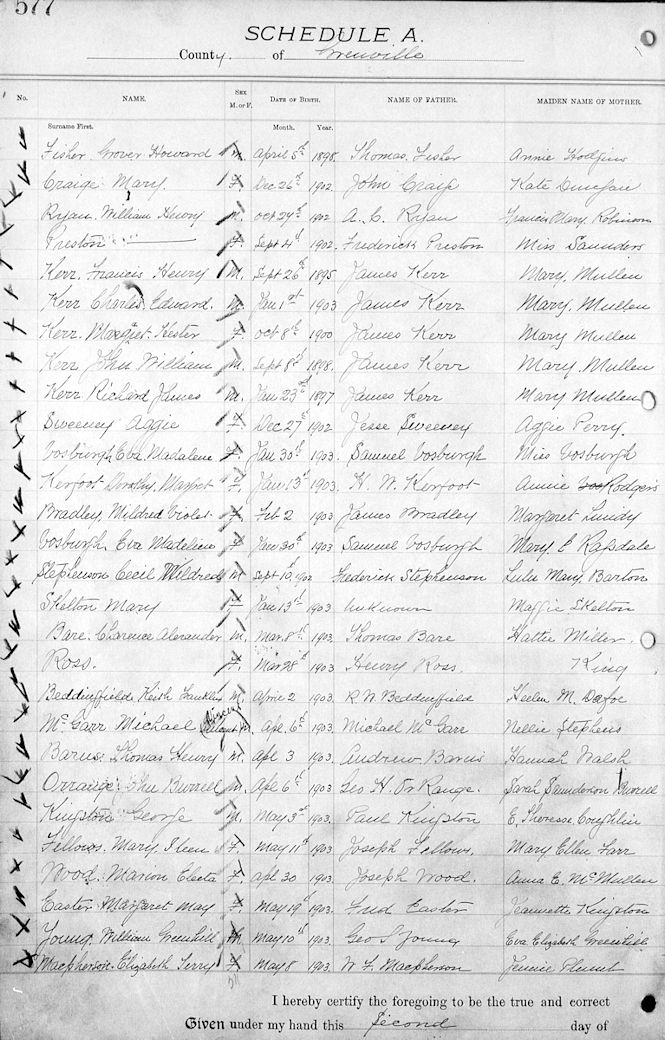 577
SCHEDULE A.
County of Grenville
No. NAME. SEX M. or F. DATE OF BIRTH. NAME OF FATHER. MAIDEN NAME OF MOTHER.
Surname First. Month. Year.
Fisher Grover Howard M. April 5th 1898. Thomas Fisher Annie Hodgins
Craige Mary. F. Dec 26th 1902. John Craig Kate
Ryan William Henry M. Oct 24th 1902 A. C. Ryan Francis Mary Robinson
Preston F. Sept 4th 1902. Frederick Preston Miss Saunders
Kerr, Francis Henry M. Sept 26th 1895 James Kerr Mary Mullen
Kerr Charles Edward. M. Jan 1st 1903 James Kerr Mary Mullen
Kerr. Margret Hester F. Oct 8th 1900 James Kerr Mary Mullen
Kerr John William M. Sept 8th 1898. James Kerr Mary Mullen
Kerr Richard James M. Jan 23rd 1897 James Kerr Mary Mullen
Sweeney Aggie F. Dec 27th 1902 Jesse Sweeney Aggie Perry.
Vosburgh Eva Madalene F. Jan 30th 1903. Samuel Vosburgh Miss Vosburgh
Kerfoot Dorothy Margret F. Jan 13th 1903. H. W. Kerfoot Annie Rodgers
Bradley, Mildred Violet F. Feb 2 1903 James Bradley Margaret Lundy
Vosburgh Eva Madeline F. Jan 30th 1903 Samuel Vosburgh Mary E Ragsdale
Stephenson Cecil Mildred M. Sept 10, 1902 Frederick Stephenson Lulu Mary Barton
Skelton Mary F. Jan 13th 1903 Unknown Maggie Skelton
Bare. Charence Alexander M. Mar. 8th 1903. Thomas Bare Hattie Miller.
Ross. F. Mar 28th 1903 Henry Ross King
Beddingfield Keith Franklin M. April 2 1903. R W Beddingfield Helen M. Dafoe
McGarr Michael Vincent M. Apl. 6th 1903. Michael McGarr Nellie Stephens
Barns Thomas Henry M. Apl 3 1903. Andrew Barns Hannah Walsh
Orrange John Burrell M. Apl 6th 1903. Geo H. Or Range. Sarah Saunderson Burrell
Kingston George M. May 3rd 1903. Paul Kingston E. Theresse Coughlin
Fellows. Mary Ileen F. May 11th 1903. Joseph Fellows. Mary Ellen Farr
Wood. Marion Electa F. Apl. 30 1903. Joseph Wood. Anna E. McMullen
Easter Margaret May F. May 19th 1903. Fred Easter Jeannette Kingston
Young. William Greenhill M. May 10th 1903. Geo S Young Eva Elizabeth Greenhill
Macpherson. Elizabeth Terry F. May 8 1903. W. F. Macpherson Jennie
I hereby certify the foregoing to be the true and correct
Given under my hand this Second day of